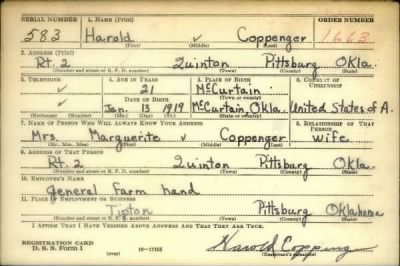 SERIAL NUMBER 1. NAME (Print) ORDER NUMBER
583 Harold ✓ Coppenger 1663
(First) (Middle) (Last)
2. ADDRESS (Print)
Rt. 2 Quinton Pittsburg Okla.
(Number and street or R. F. D. number) (Town) (County) (State)
3. TELEPHONE 4. AGE IN YEARS 5. PLACE OF BIRTH 6. COUNTRY OF CITIZENSHIP
✓ 21 McCurtain
DATE OF BIRTH (Town or county)
✓ Jan. 13 1919 McCurtain, Okla. United States of A.
(Exchange) (Number) (Mo.) (Day) (Yr.) (State or country)
7. NAME OF PERSON WHO WILL ALWAYS KNOW YOUR ADDRESS 8. RELATIONSHIP OF THAT PERSON
Mrs. Marguerite v Coppenger wife
(Mr., Mrs., Miss) (First) (Middle) (Last)
9. ADDRESS OF THAT PERSON
Rt. 2 Quinton Pittsburg Okla.
(Number and street or R. F. D. number) (Town) (County) (State)
10. EMPLOYER'S NAME
general farm hand
11. PLACE OF EMPLOYMENT OR BUSINESS
Tipton Pittsburg Oklahoma
(Number and street or R. F. D. number) (Town) (County) (State)
I AFFIRM THAT I HAVE VERIFIED ABOVE ANSWERS AND THAT THEY ARE TRUE.
REGISTRATION CARD
D. S. S. FORM 1 (over) 16—17105 Harold Copping
(Registrant's signature)